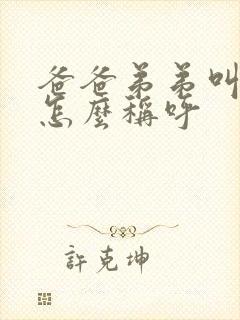 爸爸弟弟叫
怎麼稱呼
許克坤